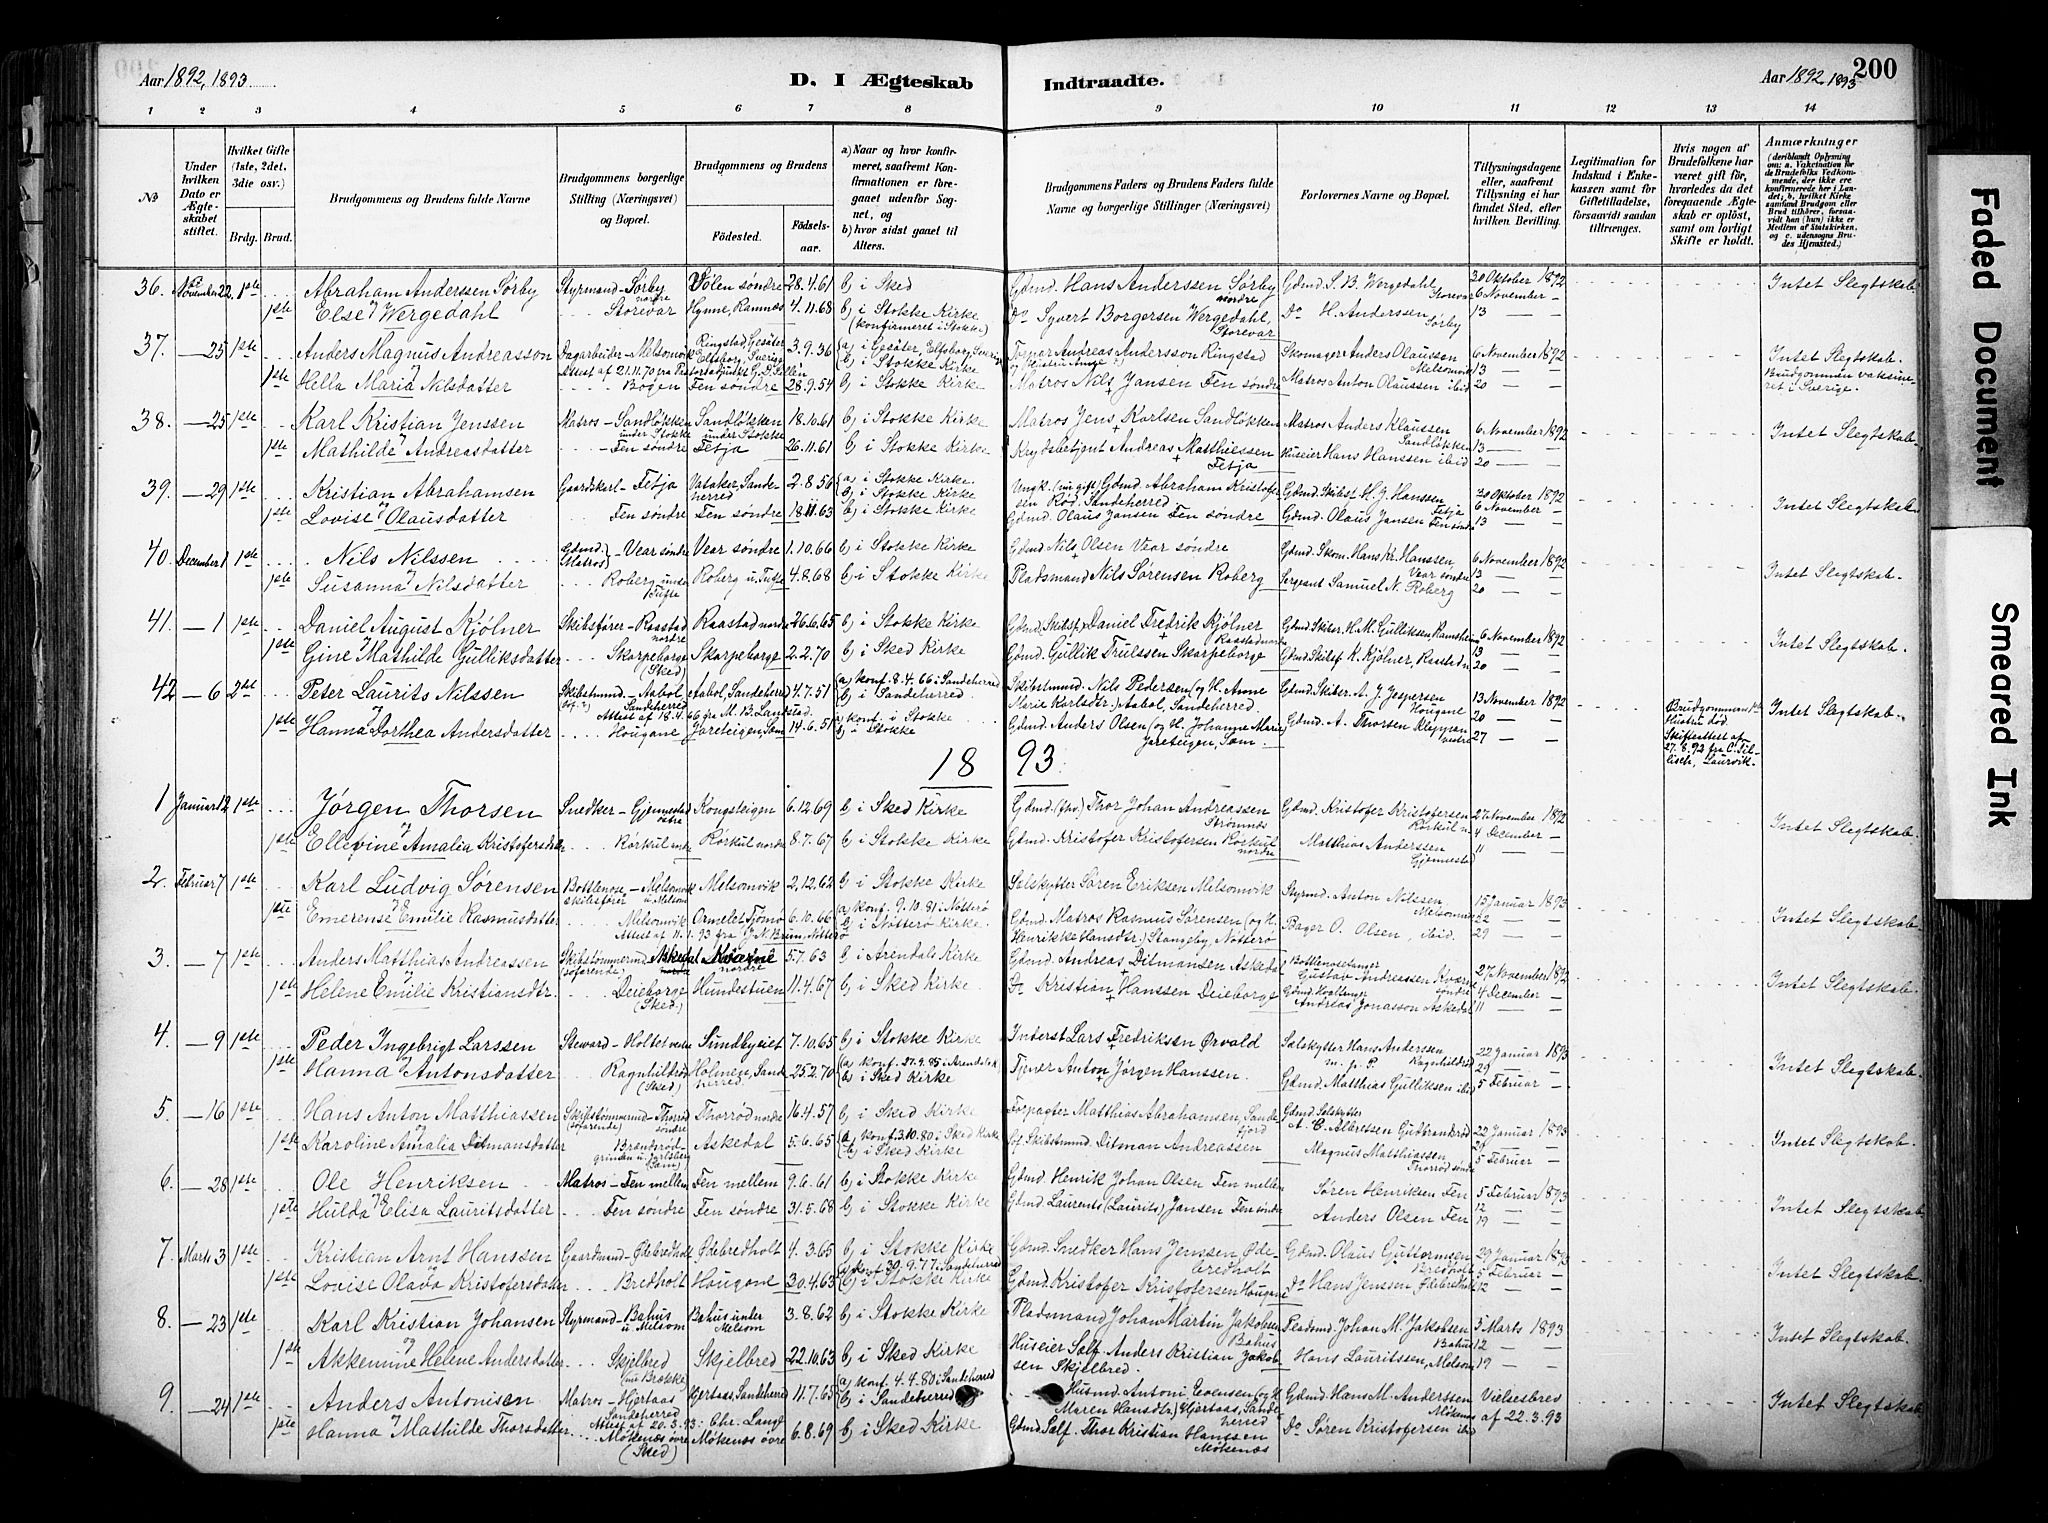 Aar 1892, 1893
D. I Ægteskab Indtraadte.
Aar 1892 1893
200
1 2 3 4 5 6 7 8 9 10 11 12 13 14
No
Under hvilken Dato er Ægteskabet stiftet.
Hvilket Gifte (1ste, 2det, 3die osv.)
Brdg. Brud.
Brudgommens og Brudens fulde Navne
Brudgommens borgerlige Stilling (Næringsvei) og Bopæl.
Brudgommens og Brudens
Fødested. Fødselsaar.
a) Naar og hvor konfirmeret, saafremt Konfirmationen er foregaaet udenfor Sognet, og
b) hvor sidst gaaet til Alters.
Brudgommens Faders og Brudens Faders fulde Navne og borgerlige Stillinger (Næringsvei)
Forlovernes Navne og Bopæl.
Tillysningsdagene eller, saafremt Tillysning ei har fundet Sted, efter hvilken Bevilling.
Legitimation for Indskud i Enkekassen samt for Giftetilladelse, forsaavidt saadan tiltrænges.
Hvis nogen af Brudefolkene har været gift før, hvorledes da det foregaaende Ægteskab er opløst, samt om lovligt Skifte er holdt.
Anmærkninger (deriblandt Oplysning om: a. Vakcination for de Brudefolks Vedkommende, der ikke ere konfirmerede her i Landet; b. hvilket Kirkesamfund Brudgom eller Brud tilhører, forsaavidt han (hun) ikke er Medlem af Statskirken, og c. udensogns Brudes Hjemsted.)
36. November 22. 1ste Abraham Anderssen Sørby Styrmand - Sørby nordre Sølen søndre 28.4.61 b) i Sked Gdmd. Hans Anderssen Sørby nordre Gdmd. S. B. Wergedahl Storevar 30 Oktober 1892 Intet Slegtskab.
1ste Else Wergedahl Storevar Hynne, Ramnæs 4.11.68 b) i Stokke Kirke (konfirmeret i Stokke) Do Syvert Borgersen Wergedahl, Storevar Do H. Anderssen Sørby 6 November — 13 —
37. — 25 1ste Anders Magnus Andreasson Dagarbeider - Melsomvik Ringstad, Gesäter, Elfsborg, Sverige 3.9.36 a) i Gesäter, Elfsborg, Sverige b) i Stokke Kirke Torpar Andreas Andersson Ringstad Skomager Anders Olaussen Melsomvik 6 November 1892 13 — Intet Slegtskab.
Attest af 21.11.70 fra Pastoradjunkt
1ste Hella Maria Nilsdatter Bogen Fen søndre 28.9.54 b) i Stokke Kirke Matros Nils Jansen Fen søndre Matros Anton Olaussen ibid 20 — Brudgommen vaksineret i Sverige.
38. — 25 1ste Karl Kristian Jenssen Matros - Sandløkken under Stokke Sandløkken under Stokke 18.10.61 b) i Stokke Kirke Matros Jens Karlsen Sandløkken Matros Anders Klaussen Sandløkken 6 November 1892 Intet Slegtskab.
1ste Mathilde Andreasdatter Fen søndre Fetja 26.11.61 b) i Stokke Kirke Krydsbetjent Andreas Matthiessen Fetja Huseier Hans Hanssen ibid 13 — 20 —
39. — 29 1ste Kristian Abrahamsen Gaardskarl - Fetja Vataker, Sandeherred 2.8.56 a) i Stokke Kirke b) i Stokke Kirke Ungk. Gdmd. Abraham Kristoffersen Rød, Sandeherred Gdmd. Skibst. H. J. Hanssen Fetja 30 Oktober 1892 6 November —
1ste Lovise Olausdatter Fen søndre Fen søndre 18.11.63 b) i Stokke Kirke Gdmd. Olaus Jansen Fen søndre Gdmd. Olaus Jansen Fen søndre 13 — Intet Slegtskab.
40. December 1 1ste Nils Nilssen Gdmd. Matros - Vear søndre Vear søndre 1.10.66 b) i Stokke Kirke Gdmd. Nils Olsen Vear søndre Gdmd. Skom. Hans Kr. Hanssen, Vear søndre 6 November 1892 13 — Intet Slegtskab.
1ste Susanna Nilsdatter Roberg under Tufte Roberg u. Tufte 4.8.68 b) i Stokke Kirke Pladsmand Nils Sørensen Roberg Sergeant Samuel N. Roberg 20 —
41. — 1 1ste Daniel August Kjølner Skibsfører - Raastad nordre Raastad nordre 26.6.65 b) i Stokke Kirke Gdmd. Skibsf. Daniel Fredrik Kjølner Raastad nordre Gdmd. Skiber. H. M. Gulliksen Ramsheim 6 November 1892 13 — Intet Slegtskab.
1ste Gine Mathilde Gulliksdatter Skarpeborge (Sked) Skarpeborge 2.2.70 b) i Sked Kirke Gdmd. Gullik Trulssen Skarpeborge Gdmd. Skibsf. K. Kjølner, Raastad n. 20 —
42 — 6 2det Peter Laurits Nilssen Skibstmnd. - Aabol Sandeherred Aabol, Sandeherred 4.7.51 a) konf. 8.4.66 i Sandeherred b) i Sandeherred Skibstmnd. Nils Pedersen (og H. Anne Marie Karlsdtr.) Aabol, Sandeherred. Gdmd. Skiber. A. J. Jespersen Hougane 13 November 1892 20 — Brudgommens 1ste Hustru død. Skifteattest af 27.8.92 fra C. Laurvik. Intet Slegtskab.
Attest af 18.4.66 fra M. B. Landstad.
1ste Hanna Dorthea Andersdatter Hougane Jareteigen, Sem 14.6.51 a) konf. i Stokke b) i Stokke Gdmd. Anders Olsen (og H. Johanne Marie) Jareteigen, Sem. Gdmd. A. Thorsen Kleppan vestre 27 —
18 93
1 Januar 12 1ste Jørgen Thorsen Snedker - Gjennestad vestre Kongsteigen 6.12.69 b) i Sked Kirke Gdmd. Thor Johan Andreassen Strømnæs Gdmd. Kristofer Kristofersen Rørkul n. 27 November 1892 4 December — Intet Slegtskab.
1ste Ellevine Amalia Kristofersdatter Rørkul ndr. Rørkul nordre 8.7.67 b) i Stokke Kirke Gdmd. Kristofer Kristofersen Rørkul nordre Matthias Anderssen Gjennestad 11 —
2. Februar 7 1ste Karl Ludvig Sørensen Bottlenoseskibsfører - Melsomvik u. Melsom Melsomvik 2.12.62 b) i Stokke Kirke Sælskytter Søren Eriksen Melsomvik Styrmd. Anton Nilssen Melsomvik 15 Januar 1893 22 — Intet Slegtskab.
1ste Emerense Emilie Rasmusdatter Melsomvik Ormelet Tjømø 6.10.66 a) konf. 9.10.81 i Nøtterø b) i Nøtterø Kirke. Gdmd. Matros Rasmus Sørensen (og H. Henrikke Hansdtr.) Stangeby, Nøtterø Bager O. Olsen, ibid. 29 —
Attest af 11.1.93 fra J. N. Bruun, Nøtterø
3. — 7 1ste Anders Matthias Andreassen Skibstømmermnd (søfarende) Askedal Kværne nordre 5.7.63 b) i Arendals Kirke Gdmd. Andreas Ditmansen Askedal Bottlenosefanger Gustav Andreassen Kværne søndre 27 November 1892 4 December — Intet Slegtskab.
1ste Helene Emilie Kristiansdtr. Deieborge (Sked) Hundestuen 11.4.67 b) i Sked Kirke Kristian Hanssen Deieborge Gdmd. Andreas Jonassen Askedal 11 —
4. — 9 1ste Peder Ingebrigt Larssen Steward - Holtet vestre Sundbyeiet 7.10.65 b) i Stokke Kirke Inderst Lars Fredriksen Ørvold Sælskytter Hans Anderssen m. f. P. Ragnhildrød 22 Januar 1893 29 — Intet Slegtskab.
1ste Hanna Antonsdatter Ragnhildrød (Sked) Holmege, Sandeherred 25.2.70 a) konf. 27.9.85 i Arendals k. b) i Sked Kirke Tjener Anton Jørgen Hanssen. Gdmd. Matthias Gulliksen ibid 5 Februar —
5. — 16 1ste Hans Anton Matthiassen Skibstømmermnd (søfarende) - Thorrød søndre Thorrød nordre 16.4.57 b) i Stokke Kirke Forpagter Matthias Abrahamsen, Sandefjord Gdmd. Sælskytter A. C. Albressen Gudbrandsrød 22 Januar 1893 Intet Slegtskab.
1ste Karoline Amalia Ditmansdatter Brandsrødgrinden u. Jarlsberg (Sem) Askedal 5.6.65 a) konf. 3.10.80 i Sked Kirke b) i Sked Kirke Skibstmnd. Ditman Andreassen Magnus Matthiassen Thorrød søndre 29 — 5 Februar —
6. — 28 1ste Ole Henriksen Matros - Fen mellem Fen mellem 9.6.61 b) i Stokke Kirke Gdmd. Henrik Johan Olsen Fen mellem Søren Henriksen Fen 5 Februar 1893 Intet Slegtskab.
1ste Hulda Elisa Lauritsdatter Fen søndre Fen søndre 31.5.68 b) i Stokke Kirke Gdmd. Laurents (Laurits) Jansen Fen søndre Anders Olsen Fen 12 — 19 —
7. Marts 3 1ste Kristian Arnt Hanssen Gaardmand - Ødebredholt Ødebredholt 4.3.65 b) i Stokke Kirke Gdmd. Snedker Hans Jenssen Ødebredholt Gdmd. Olaus Guttormsen Bredholt 29 Januar 1893 5 Februar — Intet Slegtskab.
1ste Lovise Olava Kristofersdatter Bredholt Hougane 30.4.63 a) konf. 30.9.77 i Sandeherred b) i Stokke Kirke Gdmd. Kristofer Kristofersen Hougane Do Hans Jenssen Ødebredholt 12 —
8. — 23 1ste Karl Kristian Johansen Styrmand - Bahus u. Melsom Bahus under Melsom 3.8.62 b) i Stokke Kirke Pladsmand Johan Martin Jakobsen Bahus Pladsmd. Johan M. Jakobsen Bahus 5 Marts 1893 12 — Intet Slegtskab.
1ste Akkemine Helene Andersdatter Skjelbred (nu Brække) Skjelbred 22.10.63 b) i Sked Kirke Huseier Sælf. Anders Kristian Jakobsen Skjelbred. Hans Lauritssen, Melsom 19 —
9. — 24 1ste Anders Antonisen Matros - Hjertaas Sandeherred Hjertaas, Sandeherred 11.7.65 a) konf. 4.4.80 i Sandeherred b) i Sandeherred Husmd. Antoni Evensen (og H. Maren Hansdtr.) Hjertaas, Sandeherred Gdmd. Hans M. Anderssen Møkenæs Vielsesbrev af 22.3.93 Intet Slegtskab.
Attest af 20.3.93: Chr. Lange
1ste Hanna Mathilde Thorsdatter Møkenæs øvre (Sked) Møkenæs øvre 6.8.69 b) i Sked Kirke Gdmd. Sælf. Thor Kristian Hanssen Møkenæs Do Søren Kristofersen ibid
Faded Document
Smeared Ink